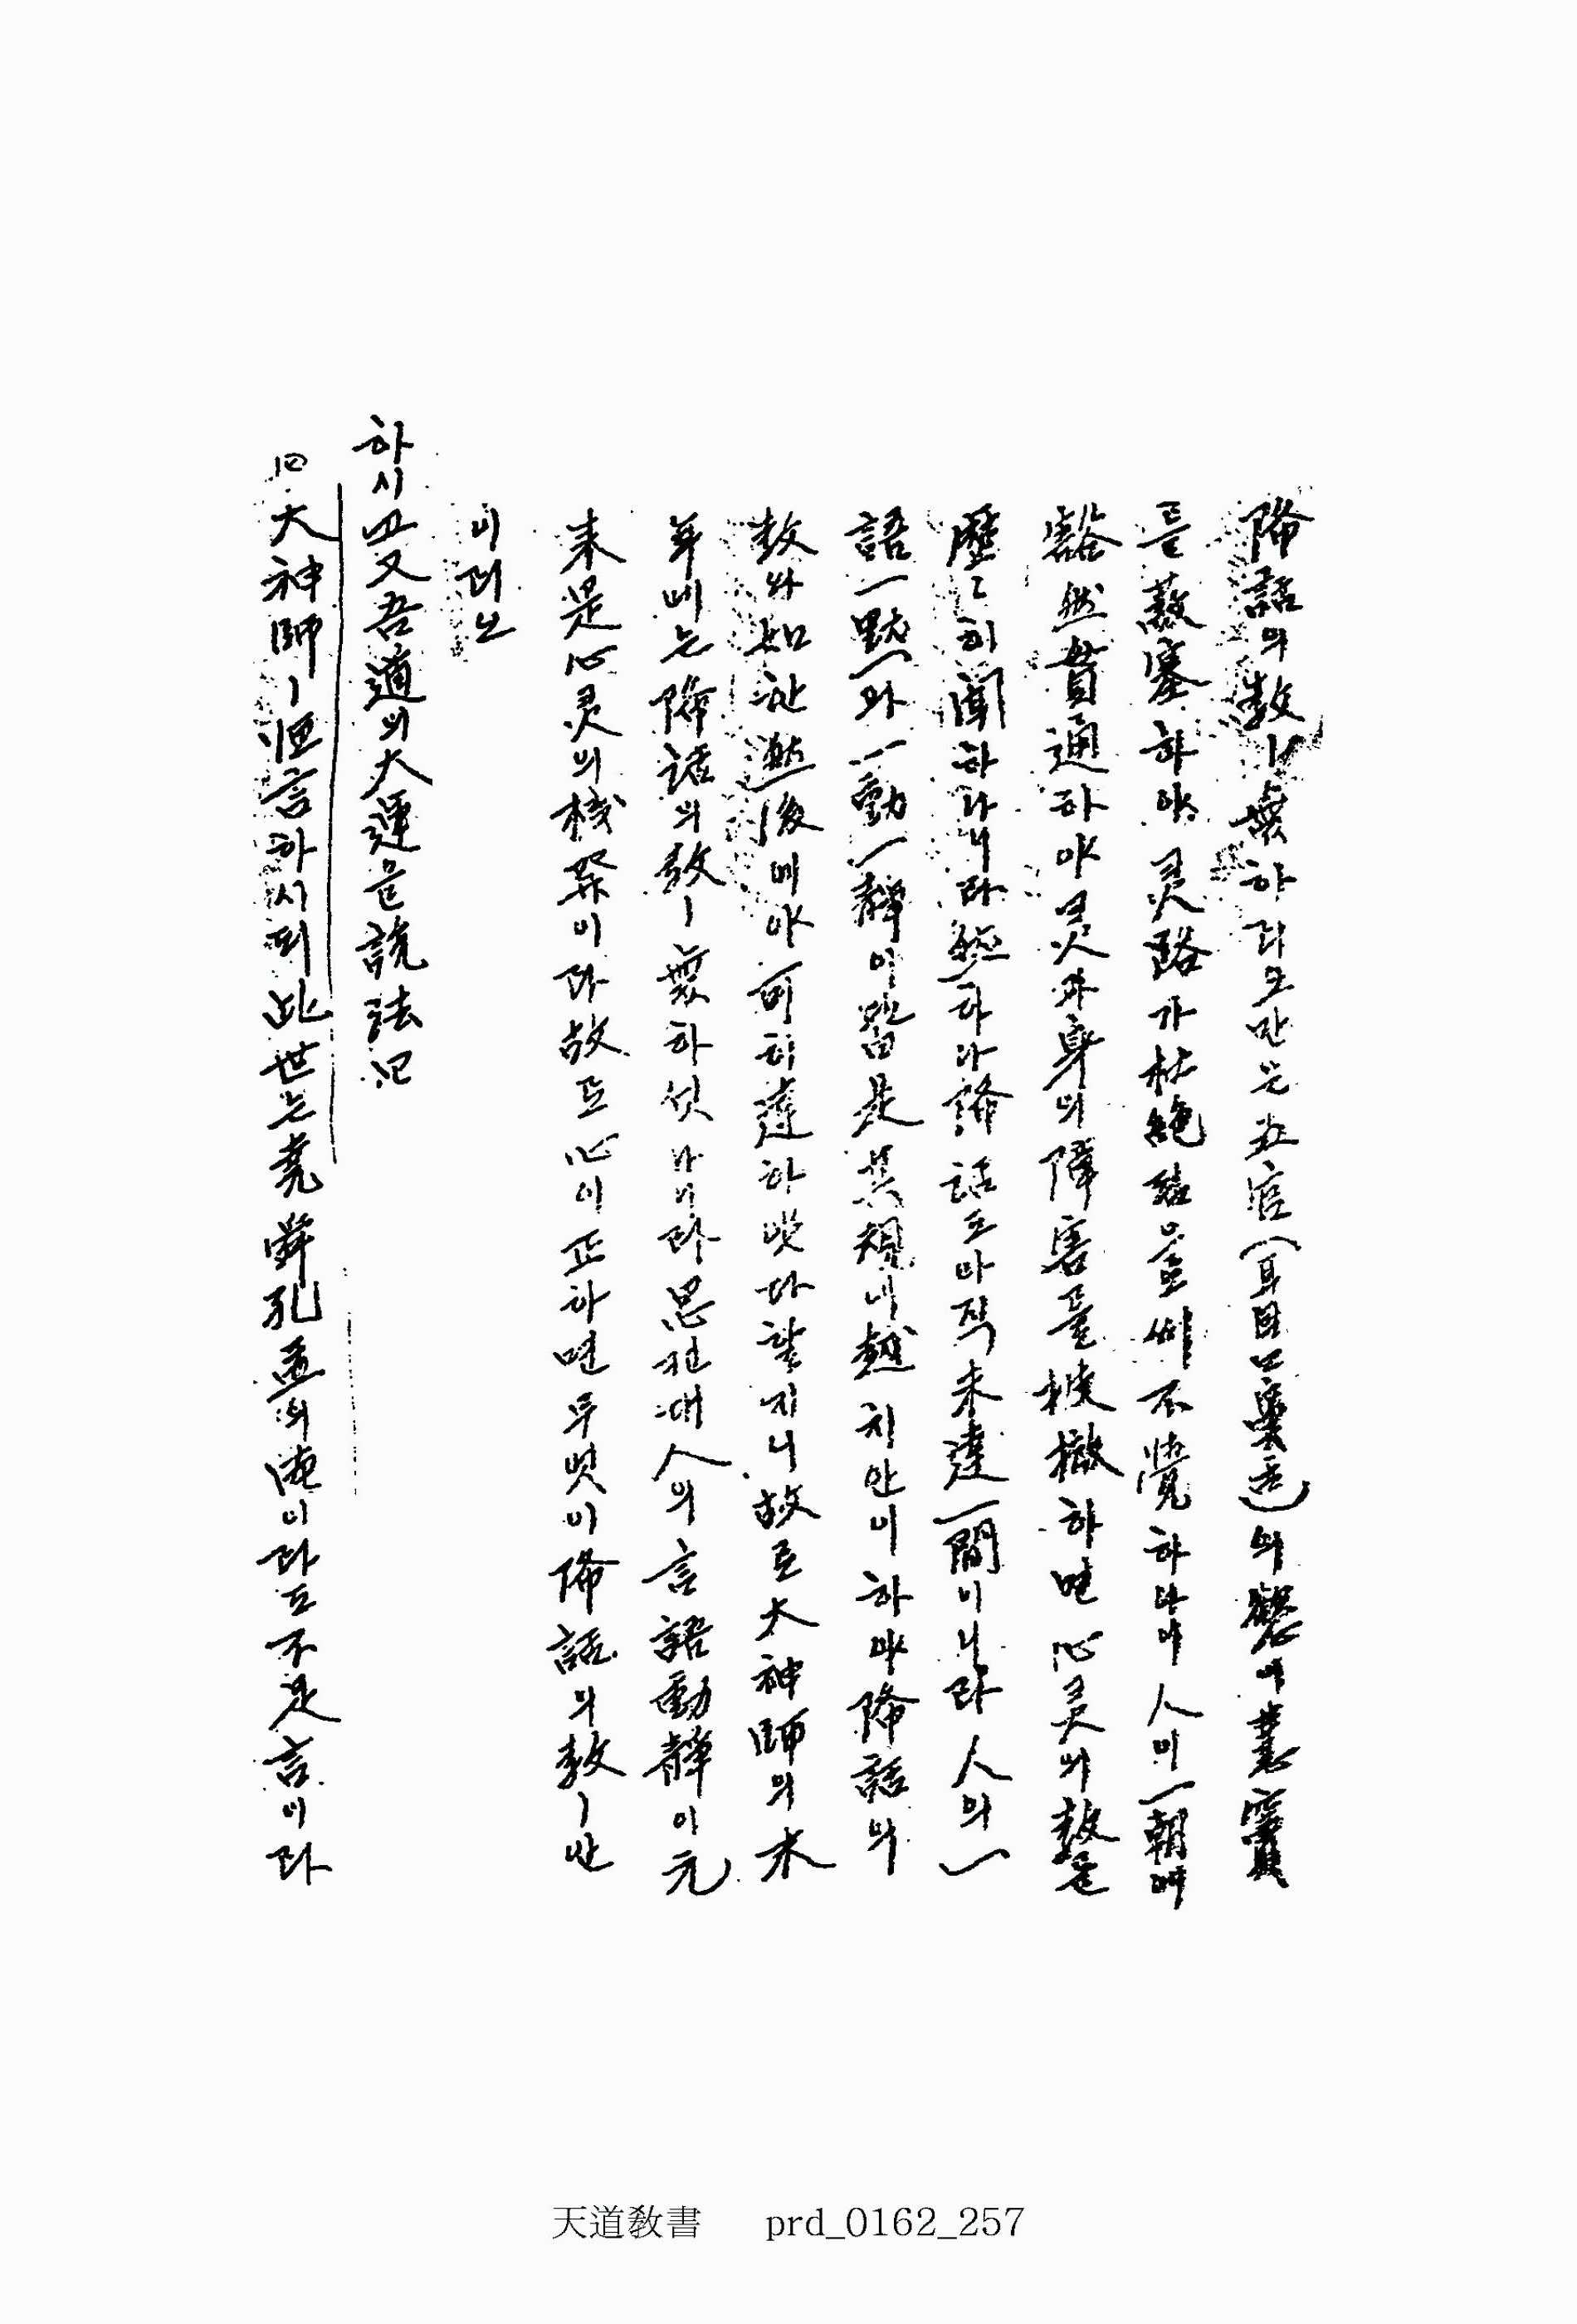 降話의 敎ㅣ 無하리오만은 五官(耳目口鼻舌)의 慾에 蔽竇
를 蔽塞하야 灵路가 杜絶됨을 써 不覺하다이 人이 一朝에
豁然貫通하야 灵과 身의 障害를 披撤하면 心灵의 敎를
歷々히 聞하나니라 然하나 降話도 아직 未達一間이니라 人의 一
語一默와 一動一靜이 皆是其規에 越치 안이하야 降話의
敎와 如한 然後에야 可히 達하얏다 할지니 故로 大神師의 末
年에는 降話의 敎ㅣ 無하섯나니라 思컨대 人의 言語動靜이 元
來是心灵의 機發이라 故로 心이 正하면 무엇이 降話의 敎ㅣ 안
이리오
하시고 又吾道의 大運을 說法할
大神師ㅣ 恒言하시되 此世는 堯舜孔孟의 德이라도 不足言이라
天道敎書 prd_0162_257